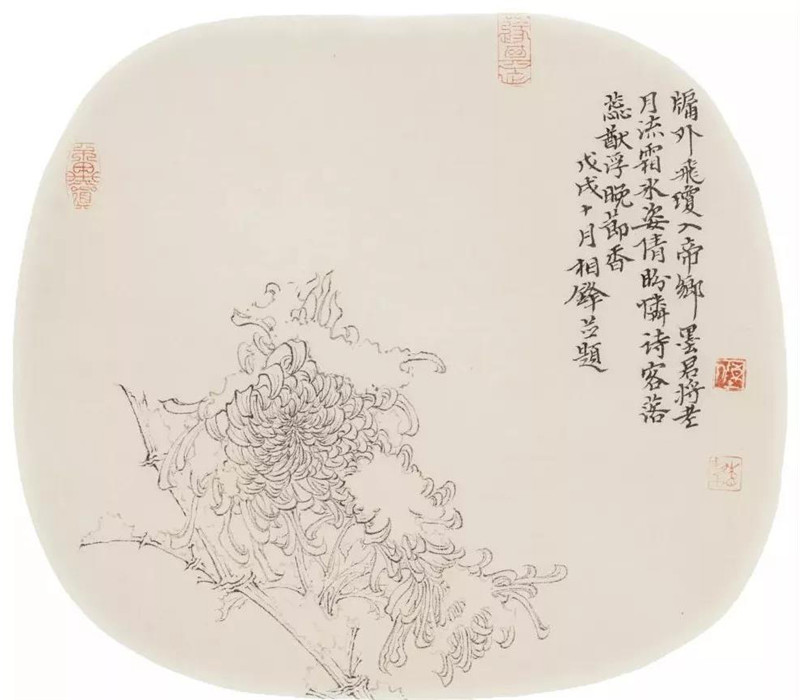 牖外飛瓊入帝鄉墨君將老
月流霜氷姿倩盼憐诗客落
蕊猷浮晚節香
戊戌十月相鋒并題